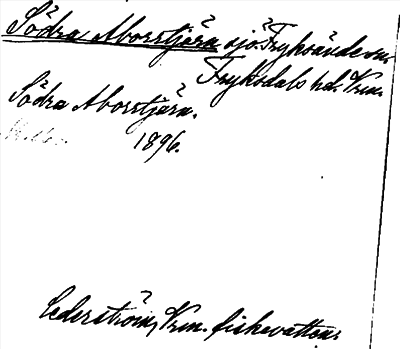 Södra Aborrtjärn sjö Fryksände sn.
Fryksdals hd. Vrm.
Södra Aborrtjärn.
1896.
Cederström, Vrm. fiskevatten.